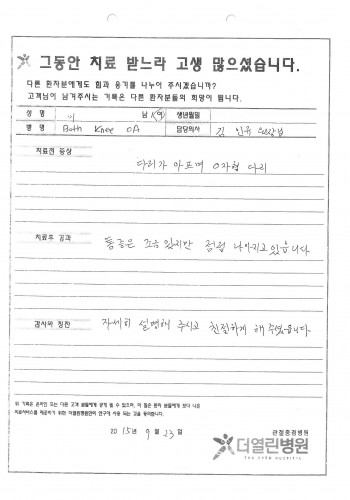 그동안 치료 받느라 고생 많으셨습니다.
다른 환자분에게도 힘과 용기를 나누어 주시겠습니까?
고객님이 남겨주시는 기록은 다른 환자분들의 희망이 됩니다.
성 명 이 남 / 여 생년월일
병 명 Both Knee OA 담당의사 김
치료전 증상
다리가 아프며 O자형 다리
치료후 결과
통증은 조금 있지만 점점 나아지고 있습니다
감사와 칭찬
자세히 설명해 주시고 친절하게 해 주셨습니다.
위 기록은 온라인 또는 다른 고객 분들에게 공개 될 수 있으며, 더 많은 환자 분들에게 보다 나은
의료서비스를 제공하기 위한 더열린병원만의 연구에 사용 되는 것을 동의합니다.
2015년 9월 23일
관절중점병원
더열린병원
THE OPEN HOSPITAL